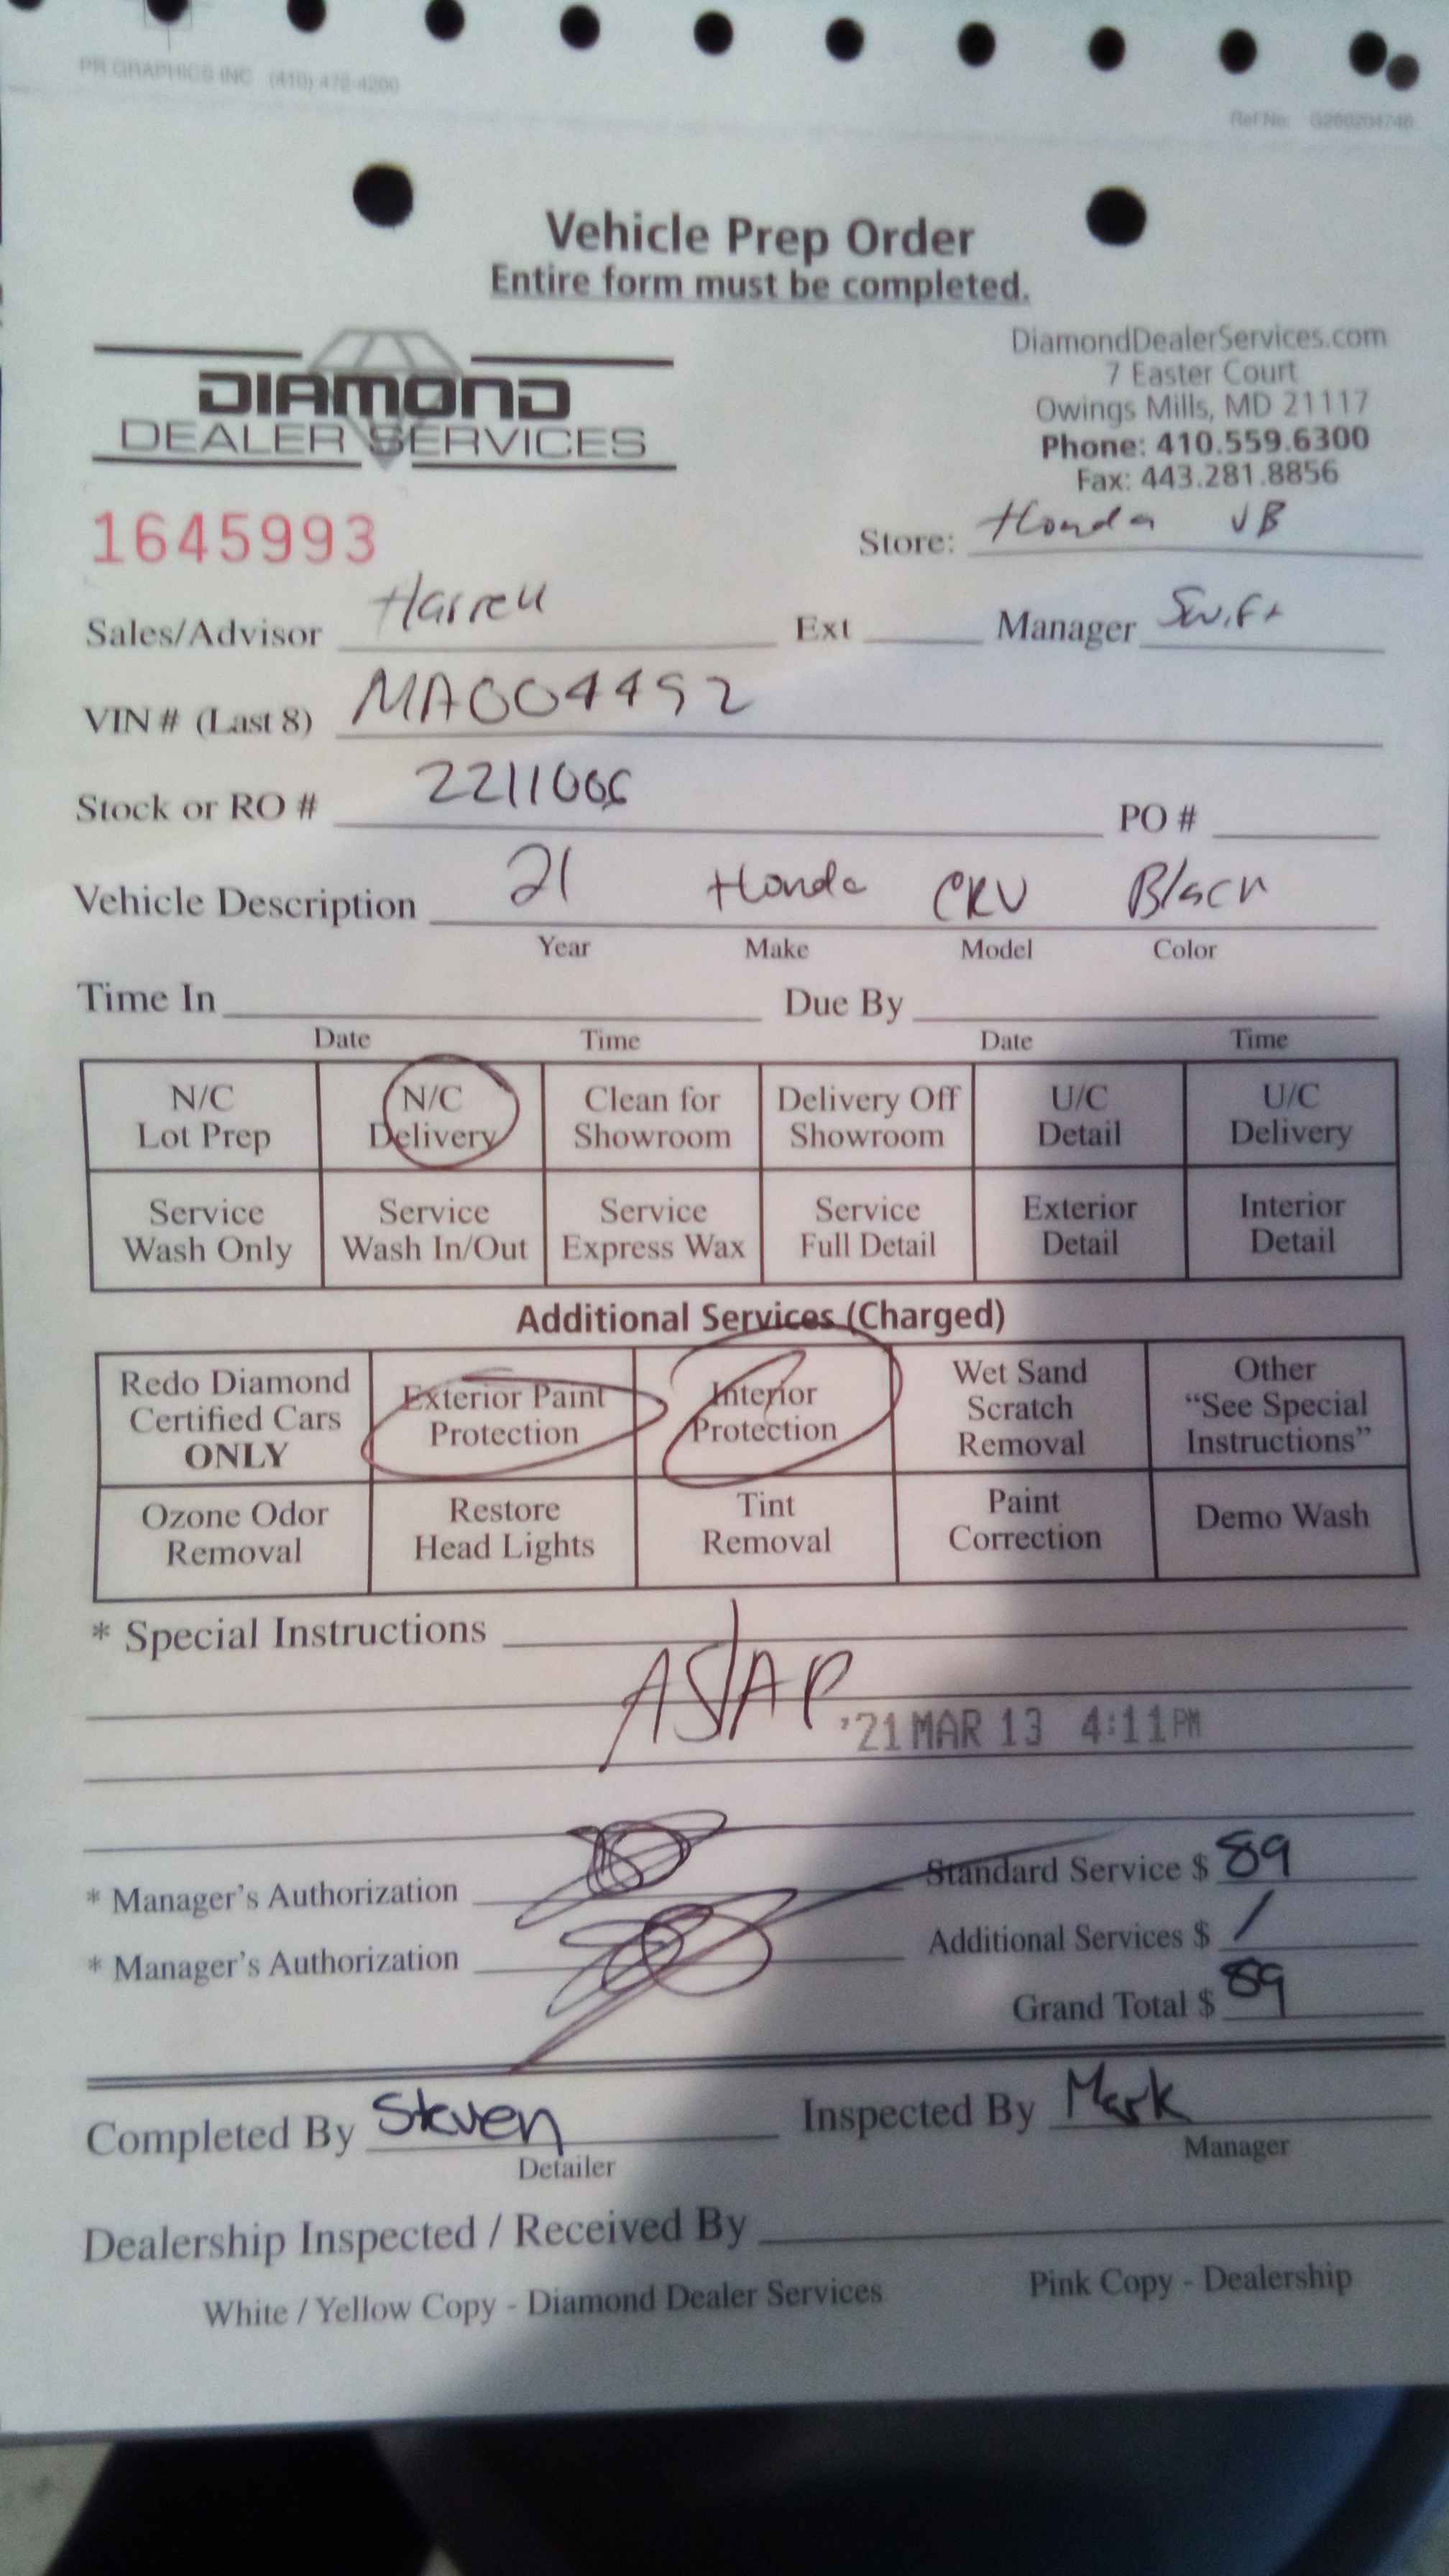 PR GRAPHICS INC (410) 472-4200
Ref No: G260204746
Vehicle Prep Order
Entire form must be completed.
DIAMOND
DEALER SERVICES
DiamondDealerServices.com
7 Easter Court
Owings Mills, MD 21117
Phone: 410.559.6300
Fax: 443.281.8856
1645993
Store: Honda VB
Sales/Advisor Harrell Ext Manager Swift
VIN # (Last 8) MA004492
Stock or RO # 2211006 PO #
Vehicle Description 21 Honda CRV Black
Year Make Model Color
Time In Due By
Date Time Date Time
N/C Lot Prep
N/C Delivery
Clean for Showroom
Delivery Off Showroom
U/C Detail
U/C Delivery
Service Wash Only
Service Wash In/Out
Service Express Wax
Service Full Detail
Exterior Detail
Interior Detail
Additional Services (Charged)
Redo Diamond Certified Cars ONLY
Exterior Paint Protection
Interior Protection
Wet Sand Scratch Removal
Other "See Special Instructions"
Ozone Odor Removal
Restore Head Lights
Tint Removal
Paint Correction
Demo Wash
* Special Instructions
ASAP
'21 MAR 13 4:11PM
* Manager's Authorization Standard Service $ 89
* Manager's Authorization Additional Services $ /
Grand Total $ 89
Completed By Steven Inspected By Mark
Detailer Manager
Dealership Inspected / Received By
White / Yellow Copy - Diamond Dealer Services Pink Copy - Dealership